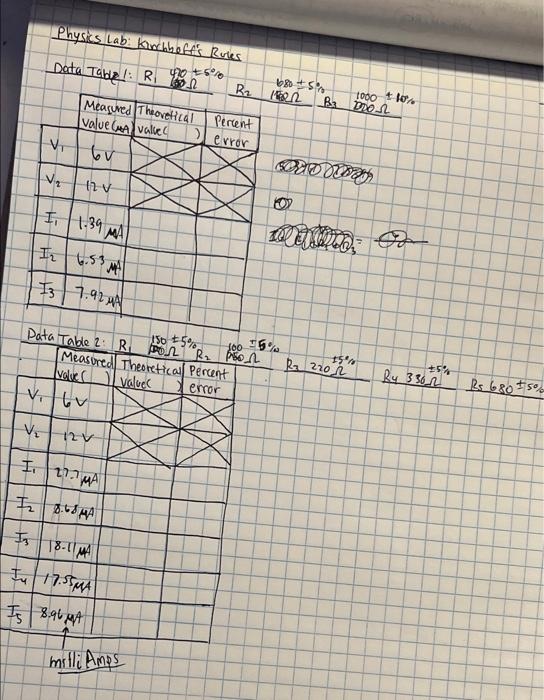 Physics Lab: Kirchhoff's Rules
Data Table 1: R₁ 470 ±5% Ω R₂ 680 ±5% Ω R₃ 1000 ± 10% Ω
Measured value (mA) Theoretical value( ) Percent error
V₁ 6V
V₂ 12V
I₁ 1.39 mA
I₂ 6.53 mA
I₃ 7.92 mA
Data Table 2: R₁ 150 ±5% Ω R₂ 100 ±5% Ω R₃ 220 ±5% Ω R₄ 330 ±5% Ω R₅ 680 ±5%
Measured value( ) Theoretical value( ) Percent error
V₁ 6V
V₂ 12V
I₁ 27.7 mA
I₂ 8.68 mA
I₃ 18.11 mA
I₄ 17.55 mA
I₅ 8.96 mA
milli Amps